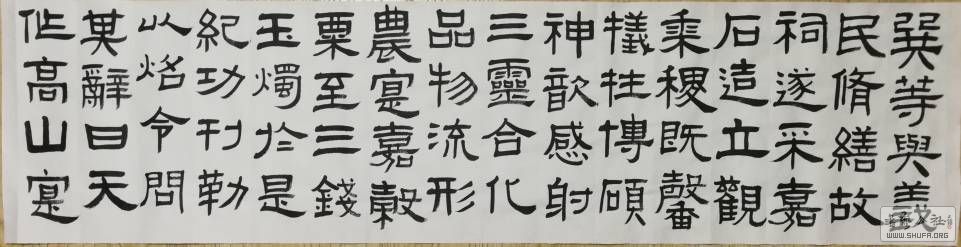 巽等與義
民脩繕故
祠遂采嘉
石造立觀
黍稷既馨
犧牲博碩
神歆感射
三靈合化
品物流形
農寔嘉穀
粟至三錢
玉燭於是
紀功刊勒
以炤令問
其辭曰天
作高山寔
WWW.SHUFA.ORG